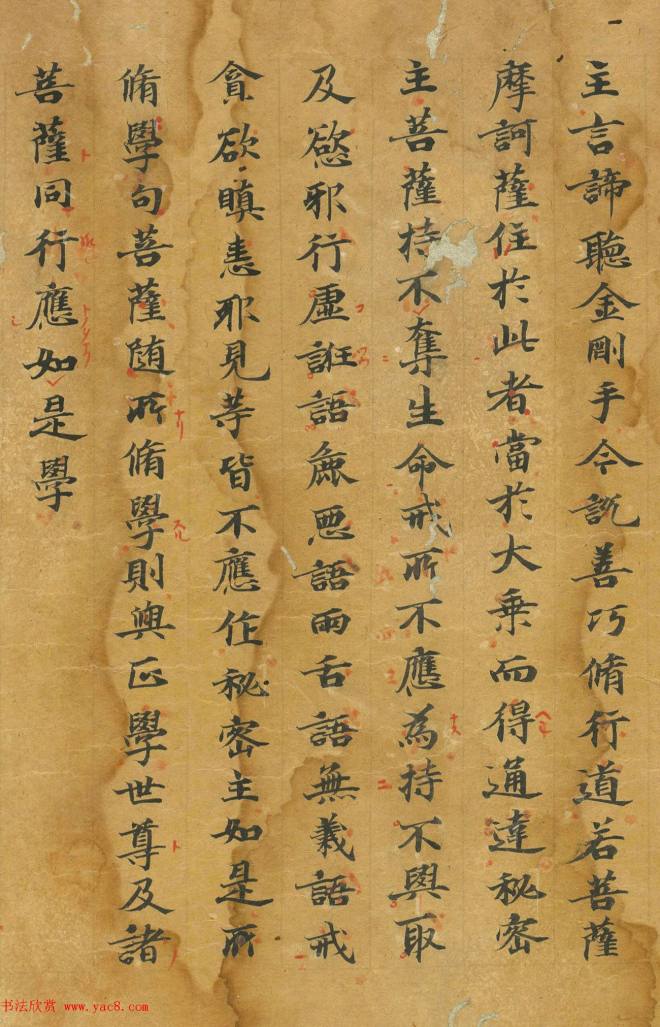 主言諦聽金剛手今說善巧脩行道若菩薩
摩訶薩住於此者當於大乗而得通達秘密
主菩薩持不奪生命戒所不應為持不與取
及慾邪行虛誑語麁悪語兩舌語無義語戒
貪欲瞋恚邪見等皆不應作秘密主如是所
脩學句菩薩随所脩學則與正學世尊及諸
菩薩同行應如是學
书法欣赏 www.yac8.com